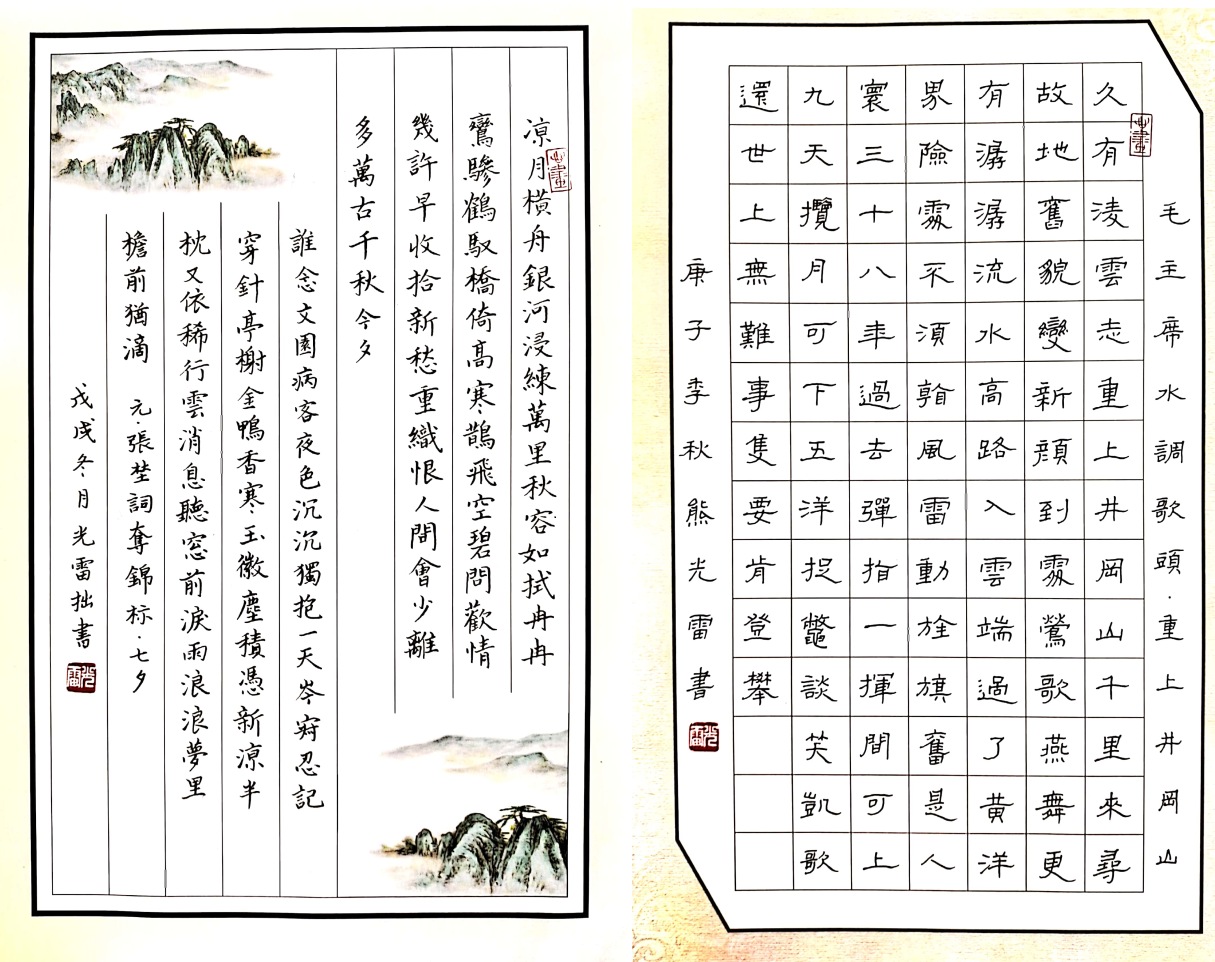 涼月橫舟銀河浸練萬里秋容如拭冉冉
鸞驂鶴馭橋倚高寒鵲飛空碧問歡情
幾許早收拾新愁重織恨人間會少離
多萬古千秋今夕
誰念文園病客夜色沉沉獨抱一天岑寂忍記
穿針亭榭金鴨香寒玉徽塵積憑新涼半
枕又依稀行雲消息聽窓前淚雨浪浪夢里
檐前猶滴 元·張埜詞奪錦标·七夕
戊戌冬月光雷拙書
光雷
毛主席水調歌頭·重上井岡山
久有淩雲志重上井岡山千里來尋
故地舊貌變新顏到處鶯歌燕舞更
有潺潺流水高路入雲端過了黃洋
界險處不須看風雷動旌旗奮是人
寰三十八年過去彈指一揮間可上
九天攬月可下五洋捉鱉談笑凱歌
還世上無難事隻要肯登攀
庚子季秋熊光雷書
光雷